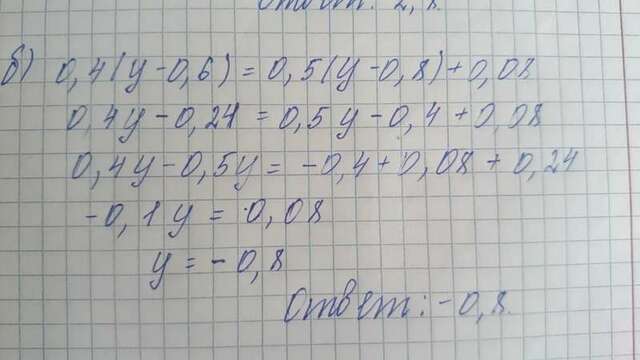 Ответ: 2,8.
б) 0,4(y-0,6)=0,5(y-0,8)+0,08
0,4y-0,24=0,5y-0,4+0,08
0,4y-0,5y=-0,4+0,08+0,24
-0,1y=0,08
y=-0,8
Ответ: -0,8.